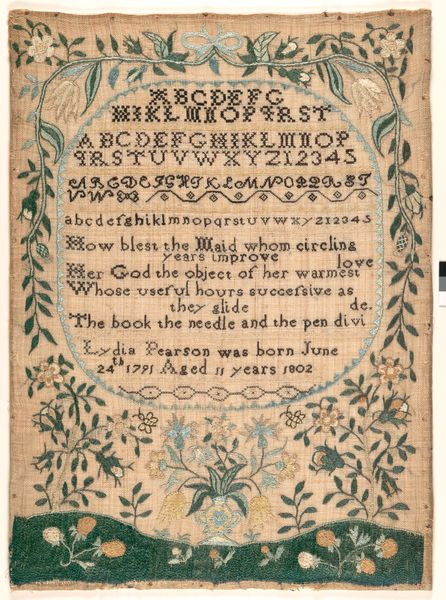 ABCDEFG
HIKLMNOPQRST
ABCDEFGHIKLMNOP
QRSTUVWXYZ12345
ABCDEFGHIKLMNOPQRST
UVW
abcdefghiklmnopqrstuvwxyz12345
How blest the Maid whom circling
years improve
Her God the object of her warmest love
Whose useful hours succeſsive as
they glide
The book the needle and the pen divi de.
Lydia Pearson was born June
24th 1791 Aged 11 years 1802